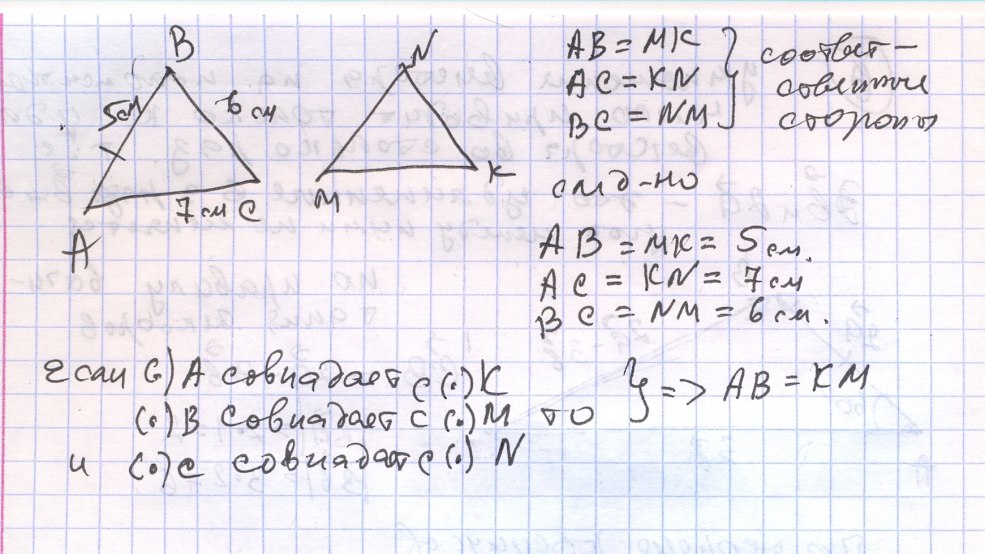 B
N
5см
6 см
A
7 см C
M
K
AB = MK
AC = KN
BC = NM
соответ-
сов
стороны
сл⁠д-но
AB = MK = 5 см.
AC = KN = 7 см
BC = NM = 6 см.
если (·) A совпадает с (·) K
(·) B совпадает с (·) M то
и (·) C совпадает с (·) N
} => AB = KM